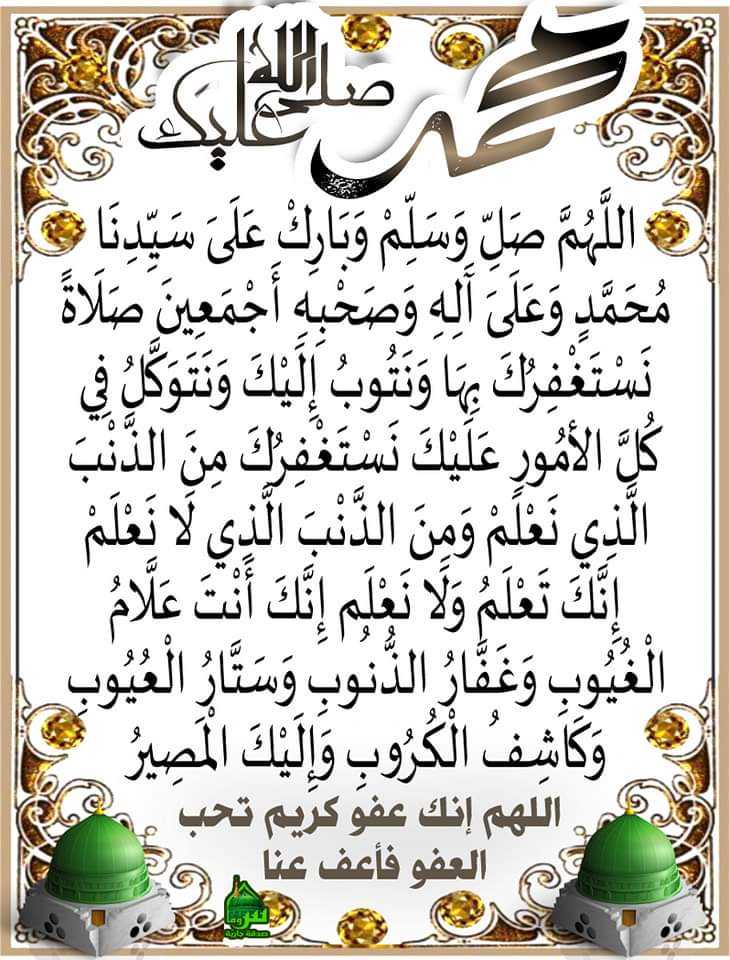 محمد
صلى الله
عليك
اللَّهُمَّ صَلِّ وَسَلِّمْ وَبَارِكْ عَلَىَ سَيِّدِنَا
مُحَمَّدٍ وَعَلَىَ آلِهِ وَصَحْبِهِ أَجْمَعِينَ صَلَاةً
نَسْتَغْفِرُكَ بِهَا وَنَتُوبُ إِلَيْكَ وَنَتَوَكَّلُ فِي
كُلَّ الأمُورِ عَلَيْكَ نَسْتَغْفِرُكَ مِنَ الذَّنْبَ
الَّذِي نَعْلَمْ وَمِنَ الذَّنْبَ الَّذِي لَا نَعْلَمْ
إِنَّكَ تَعْلَمُ وَلَا نَعْلَم إِنَّكَ أَنْتَ عَلَّامُ
الْغُيُوبِ وَغَفَّارُ الذُّنُوبِ وَسَتَّارُ الْعُيُوبِ
وَكَاشِفُ الْكُرُوبِ وَإِلَيْكَ الْمَصِيرُ
اللهم إنك عفو كريم تحب
العفو فأعف عنا
صدقة جارية